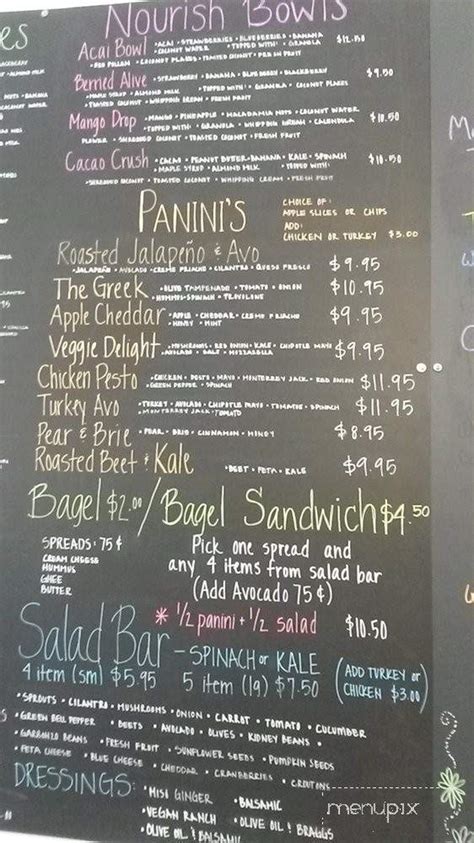 es
Nourish Bowls
Acai Bowl • Acai • Strawberries • Blueberries • Banana $12.50
• Coconut Water • Topped with: • Granola
• Bee Pollen • Coconut Flakes • Toasted Coconut • Fresh Fruit
Berried Alive • Strawberry • Banana • Blueberry • Blackberry $9.50
• Maple Syrup • Almond Milk • Topped with: • Granola • Coconut Flakes
• Toasted Coconut • Whipping Cream • Fresh Fruit
Mango Drop • Mango • Pineapple • Macadamia Nuts • Coconut Water $10.50
• Topped with: • Granola • Whipping Cream • Calendula
Flower • Shredded Coconut • Toasted Coconut • Fresh Fruit
Cacao Crush • Cacao • Peanut Butter • Banana • Kale • Spinach $10.50
• Maple Syrup • Almond Milk • Topped with:
• Shredded Coconut • Toasted Coconut • Whipping Cream • Fresh Fruit
PANINI'S
CHOICE OF:
APPLE SLICES OR CHIPS
ADD:
CHICKEN OR TURKEY $3.00
Roasted Jalapeño & Avo $9.95
• Jalapeños • Avocado • Creme Fraiche • Cilantro • Queso Fresco
The Greek • Olive Tampenade • Tomato • Onion $10.95
• Hummus • Spinach • Provolone
Apple Cheddar • Apple • Cheddar • Creme Fraiche $9.95
• Honey • Mint
Veggie Delight • Mushrooms • Red Onion • Kale • Chipotle Mayo $9.95
• Avocado • Salt • Mozzarella
Chicken Pesto • Chicken • Pesto • Mayo • Monterrey Jack • Red Onion $11.95
• Green Pepper • Spinach
Turkey Avo • Turkey • Avocado • Chipotle Mayo • Tomatoe • Spinach $11.95
• Monterrey Jack • Tomato
Pear & Brie • Pear • Brie • Cinnamon • Honey $8.95
Roasted Beet & Kale • Beet • Feta • Kale $9.95
Bagel $2.00 / Bagel Sandwich $4.50
SPREADS: 75¢
CREAM CHEESE
HUMMUS
GHEE
BUTTER
Pick one spread and
any 4 items from salad bar
(Add Avocado 75¢)
* ½ panini + ½ salad $10.50
Salad Bar - SPINACH or KALE
4 item (sm) $5.95 5 item (lg) $7.50
(ADD TURKEY or
CHICKEN $3.00)
• SPROUTS • CILANTRO • MUSHROOMS • ONION • CARROT • TOMATO • CUCUMBER
• GREEN BELL PEPPER • BEETS • AVOCADO • OLIVES • KIDNEY BEANS •
GARBONZO BEANS • FRESH FRUIT • SUNFLOWER SEEDS • PUMPKIN SEEDS
• FETA CHEESE • BLUE CHEESE • CHEDDAR • CRANBERRIES • CROUTONS
DRESSINGS: • MISI GINGER • BALSAMIC
• VEGAN RANCH • OLIVE OIL & BRAGGS
• OLIVE OIL & BALSAMIC
menupix